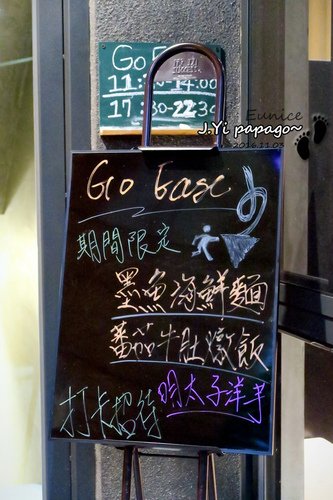 Go Ease
11:30-14:00
17:30-22:30
Eunice
J.Yi papago~
2016.11.03
Go Ease
期間限定
墨魚海鮮麵
蕃茄牛肚燉飯
打卡招待
明太子洋芋